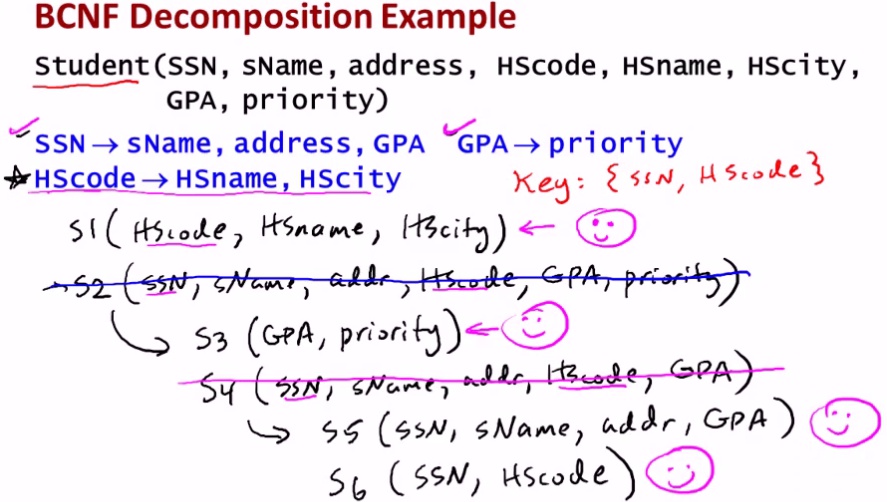 BCNF Decomposition Example
Student(SSN, sName, address, HScode, HSname, HScity,
GPA, priority)
SSN → sName, address, GPA GPA → priority
HScode → HSname, HScity
Key: {SSN, HScode}
S1(HScode, HSname, HScity) ←
S2 (SSN, sName, addr, HScode, GPA, priority)
S3 (GPA, priority) ←
S4 (SSN, sName, addr, HScode, GPA)
S5 (SSN, sName, addr, GPA)
S6 (SSN, HScode)